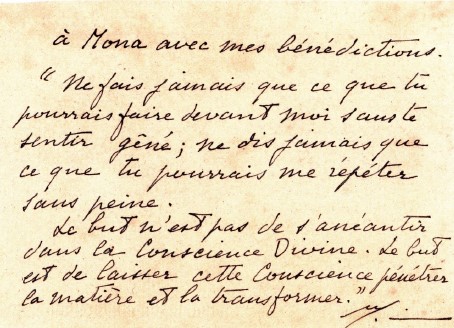 à Mona avec mes bénédictions.
"Ne fais jamais que ce que tu
pourrais faire devant moi sans te
sentir gêné; ne dis jamais que
ce que tu pourrais me répéter
sans peine.
Le but n'est pas de s'anéantir
dans la Conscience Divine. Le but
est de laisser cette Conscience pénétrer
la matière et la transformer."